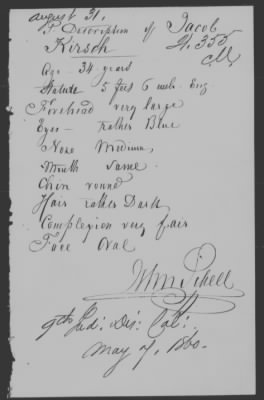 august 31,
Description of Jacob
Kirsch
Age - 34 years
Statute 5 feet 6 inch. Eng
Forehead very large
Eyes - rather Blue
Nose Medium,
Mouth same.
Chin round
Hair rather Dark
Complexion very fair
Face Oval
9th Jud: Dis: Cal:
May 7, 1860.